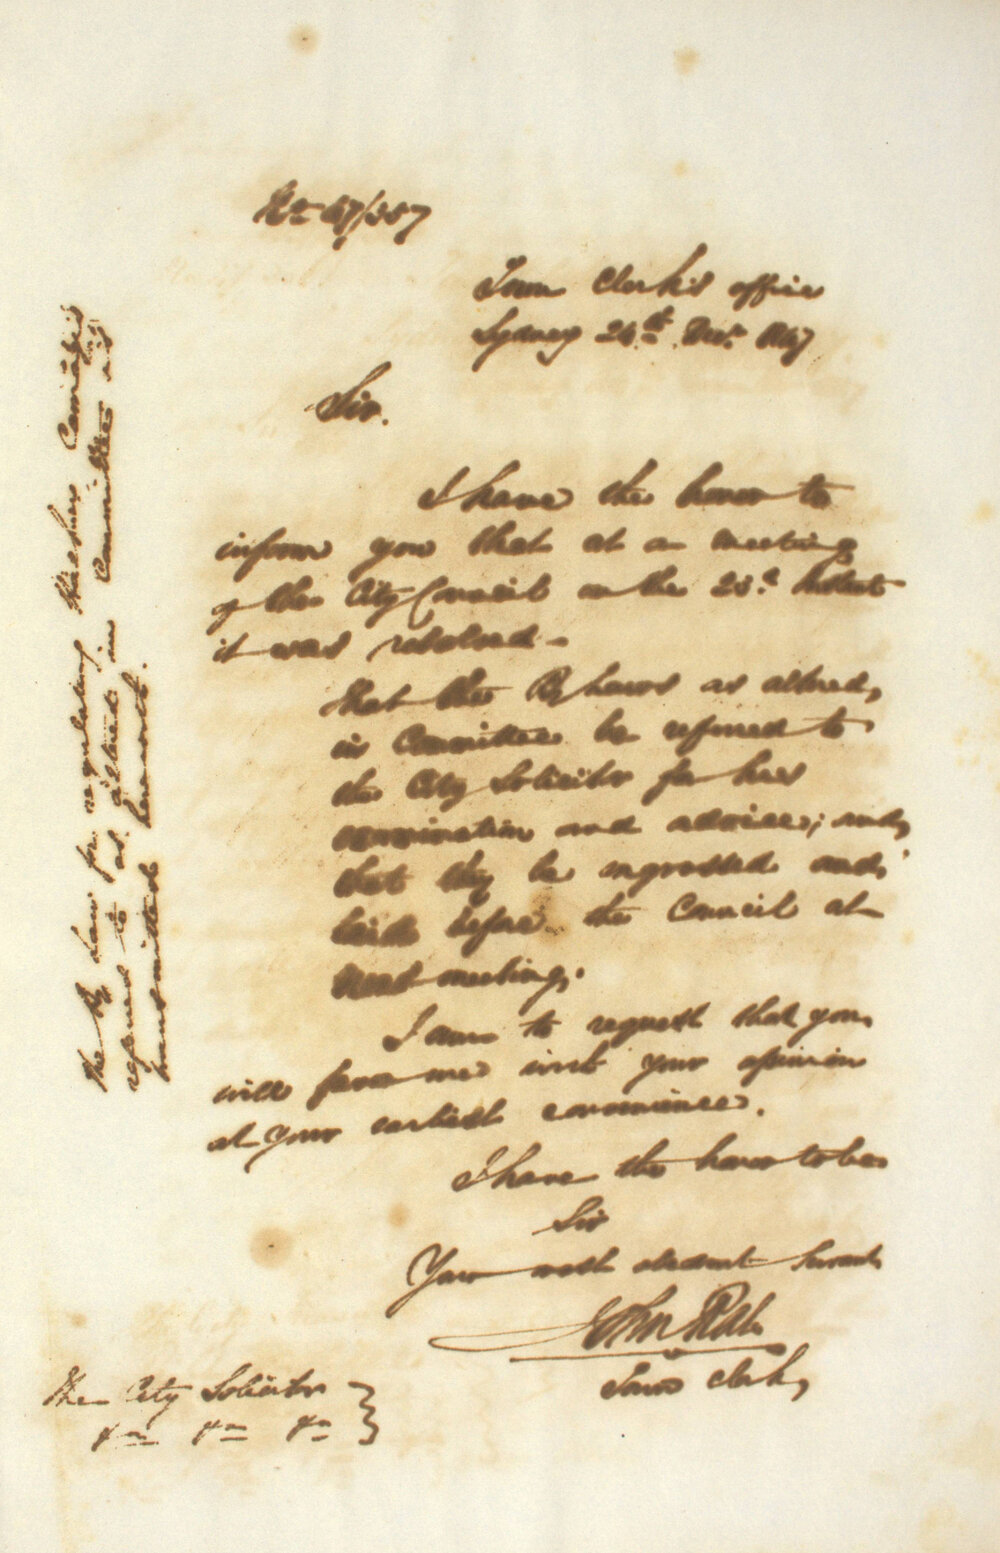 No 47/557
Town Clerk's office
Sydney 24th Decr 1847
Sir.
I have the honor to
inform you that at a meeting
of the City Council on the 23d Instant
it was resolved -
That the By Laws as altered,
in Committee be referred to
the City Solicitor for his
examination and advice; and,
that they be engrossed and
laid before the Council at
next meeting.
I am to request that you
will favor me with your opinion
at your earliest convenience.
I have the honor to be
Sir
Your most obedient Servant
John Rae
Town Clerk,
The City Solicitor
&c &c &c
The By Law for regulating Hackney Carriages
referred to as altered in Committee is
transmitted herewith.